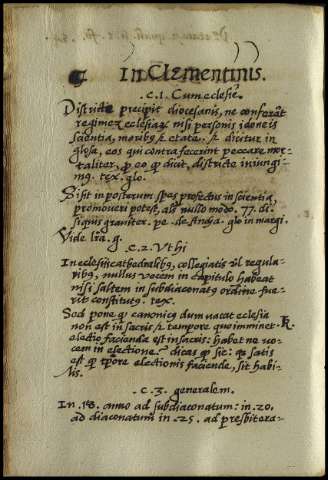 In Clementinis.
.c.1. Cum eclesię.
Districte precipit diocesanis, ne conferāt
regimē eclesiaʒ nisi personis idoneis
scientia, moribꝰ et etate. et dicitur in
glosa, eos qui contra fecerint peccare mor-
taliter. p eo qͦ dicit, districte iniungi-
mꝰ. tex. glo.
Si sit in posterum spes profectus in scientia,
promoveri potest, als nullo modo. 77. di-
glo in margi.
Vide lrā. g.
.c.2. Ut hi
In eclesiis cathedralibꝰ, collegiatis vl regula-
ribꝰ, nullus vocem in capitulo habeat
nisi saltem in subdiaconatꝰ ordine fue-
rit constitutꝰ. tex.
Sed pone qͦ canonicꝰ dum vacat eclesia
non est in sacris et tempore quo imminet
electio facienda est in sacris: habet ne vo-
cem in electione. dicas qͦ sic: qͣ satis
est qͦ tpore electionis faciende, sit habi-
lis.
.c.3. generalem.
In .18. anno ad subdiaconatum: in .20.
ad diaconatum in .25. ad presbitera-